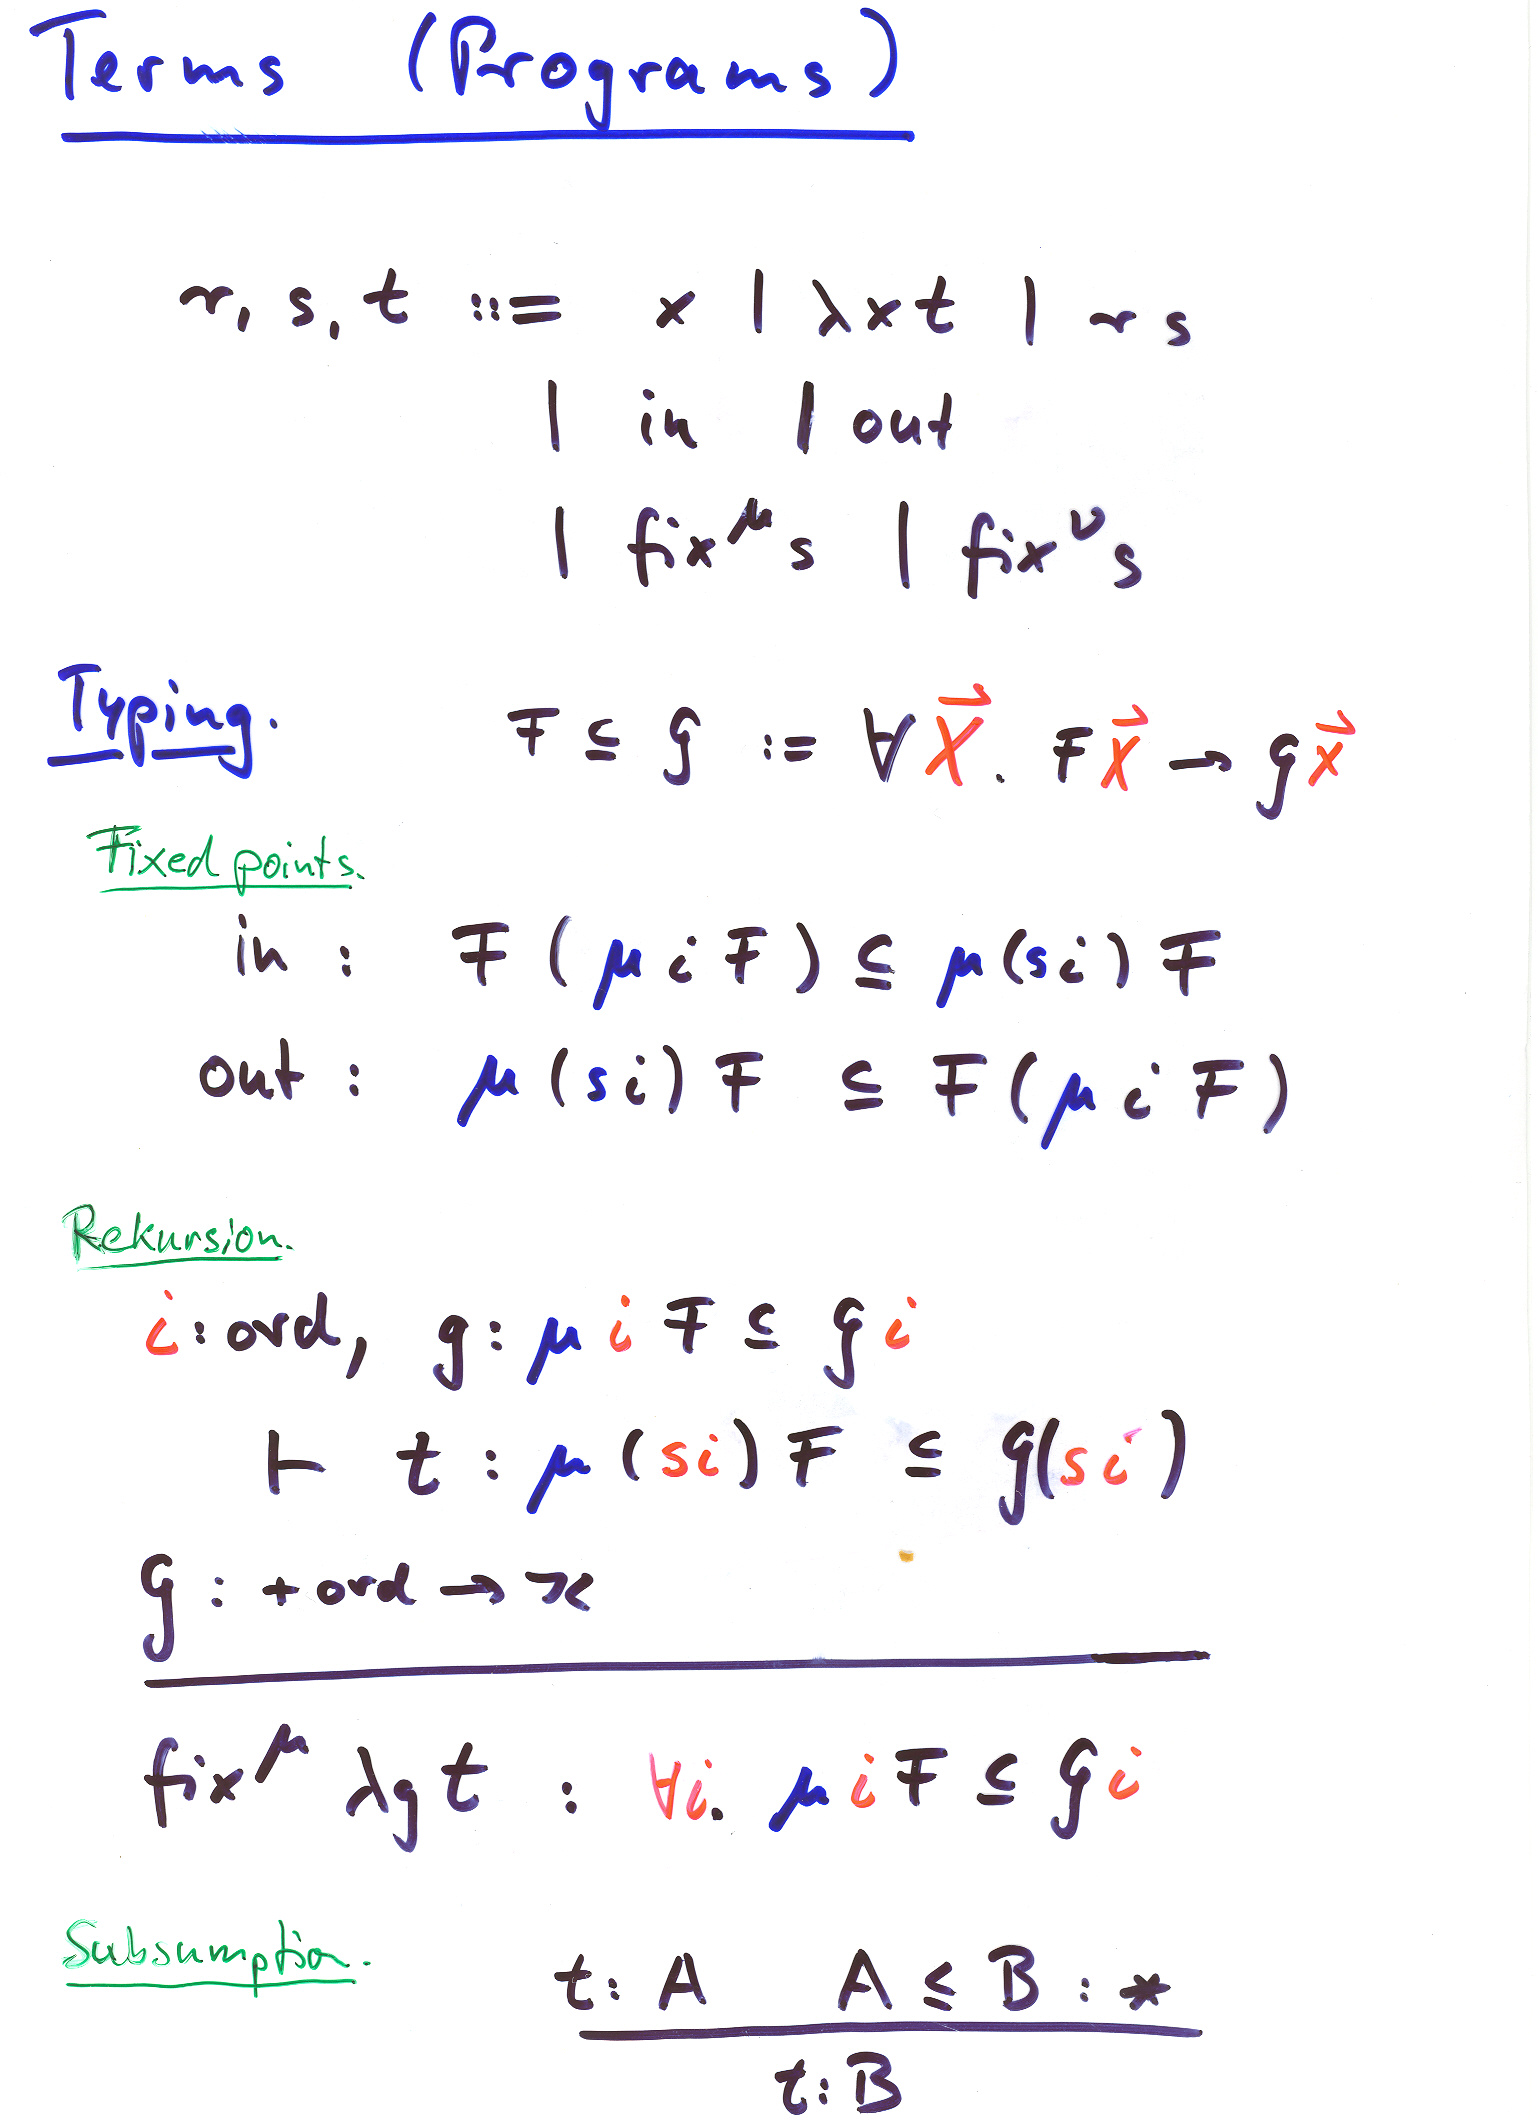 Terms (Programs)
r, s, t ::= x | λxt | r s
| in | out
| fix^μ s | fix^ν s
Typing. F ⊆ G := ∀X⃗. FX⃗ → GX⃗
Fixed points.
in : F (μ i F) ⊆ μ(si) F
out : μ(si) F ⊆ F(μ i F)
Rekursion.
i:ord, g: μ i F ⊆ G i
⊢ t : μ(si) F ⊆ G(si)
G : +ord → κ
fix^μ λg t : ∀i. μ i F ⊆ G i
Subsumption.
t: A A ≤ B : *
t: B